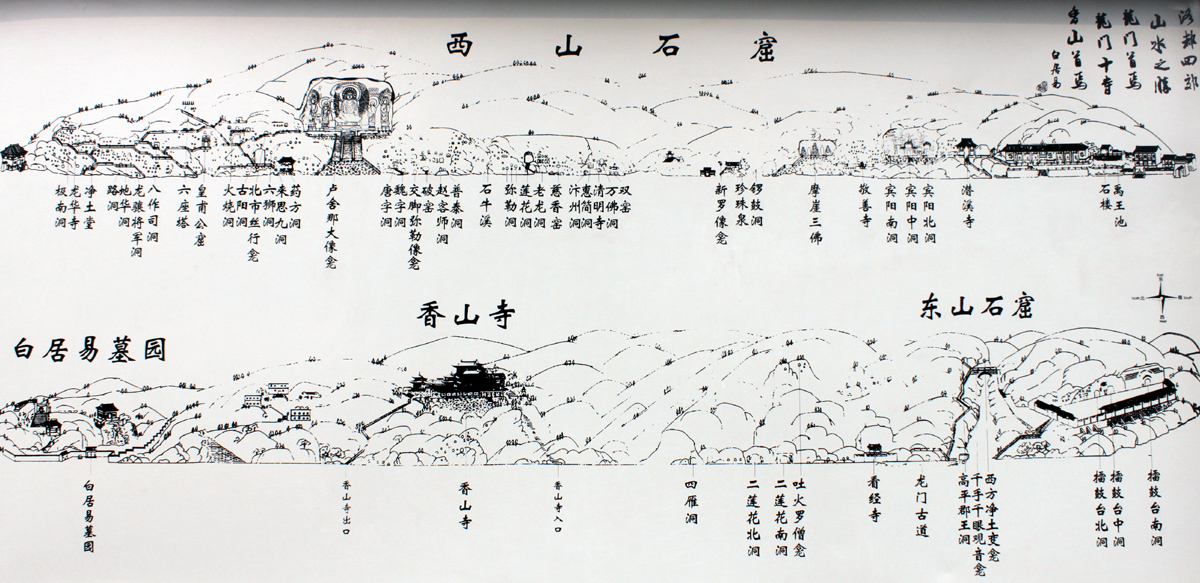 西山石窟
洛都四郊
山水之勝
龍门首焉
龍门十寺
香山首焉
白居易
极南洞
龙华寺
净土堂
路洞
地华洞
龙骧将军洞
八作司洞
六座塔
皇甫公窟
火烧洞
古阳洞
北市丝行龛
六狮洞
来思九洞
药方洞
卢舍那大像龛
唐字洞
魏字洞
交脚弥勒像龛
破窑
赵客师洞
普泰洞
石牛溪
弥勒洞
莲花洞
老龙洞
慈香窑
汴州洞
惠简洞
清明寺
万佛洞
双窑
新罗像龛
珍珠泉
锷鼓洞
摩崖三佛
敬善寺
宾阳南洞
宾阳中洞
宾阳北洞
潜溪寺
石楼
禹王池
白居易墓园
香山寺
东山石窟
白居易墓园
香山寺出口
香山寺
香山寺入口
四雁洞
二莲花北洞
二莲花南洞
吐火罗僧龛
看经寺
龙门古道
高平郡王洞
千手千眼观音龛
西方净土变龛
擂鼓台北洞
擂鼓台中洞
擂鼓台南洞